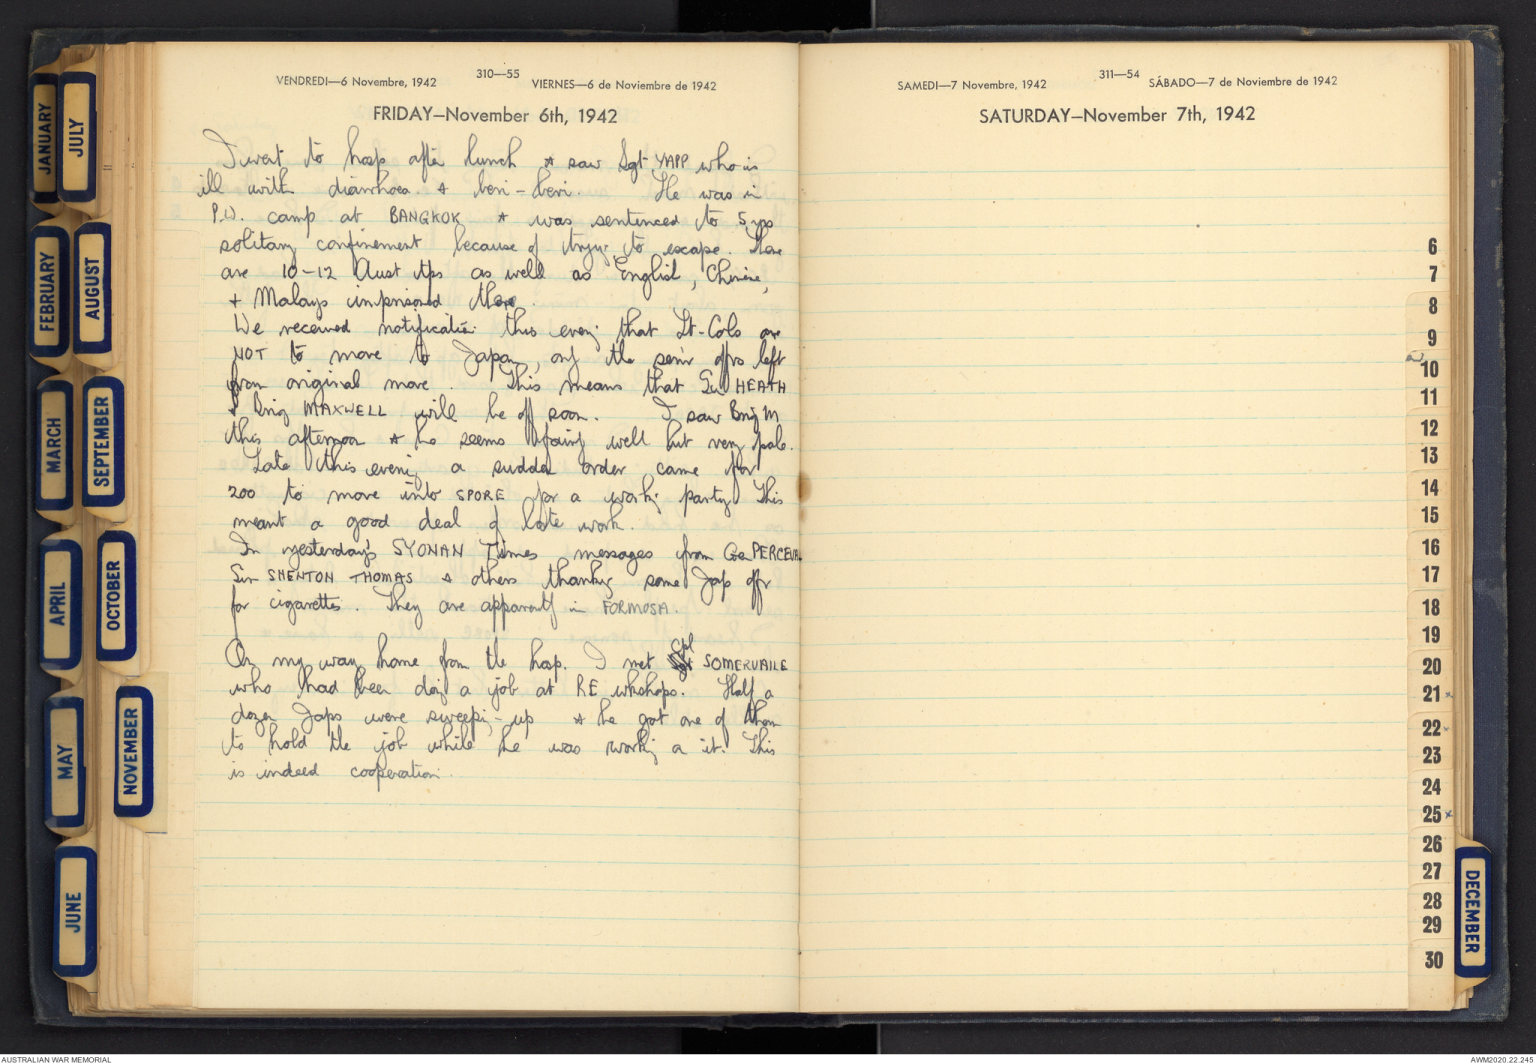 JANUARY
JULY
FEBRUARY
AUGUST
MARCH
SEPTEMBER
APRIL
OCTOBER
MAY
NOVEMBER
JUNE
VENDREDI—6 Novembre, 1942
310—55
VIERNES—6 de Noviembre de 1942
FRIDAY—November 6th, 1942
I went to hosp after lunch & saw Sgt YAPP who is
ill with diarrhoea & beri-beri. He was in
P.W. camp at BANGKOK & was sentenced to 5 yrs
solitary confinement because of tryg. to escape. There
are 10-12 Aust tps as well as English, Chinese,
+ Malays imprisoned there.
We received notificatio: this eveng that Lt-Cols are
NOT to move to Japan, only the senr offrs left
from original move. This means that Sir HEATH
& Brig MAXWELL will be off soon. I saw Brig M
this afternoon & he seems fairly well but very pale.
Late this evening a sudden order came for
200 to move into SPORE for a workg party. This
meant a good deal of late work.
In yesterday's SYONAN Times messages from Gen PERCEVAL
Sir SHENTON THOMAS & others thankg some Jap offr
for cigarettes. They are apparently in FORMOSA.
On my way home from the hosp. I met Cpl SOMERVAILE
who had been doig a job at RE wkshops. Half a
dozen Japs were sweepig-up & he got one of them
to hold the job while he was workig a it. This
is indeed cooperation.
SAMEDI—7 Novembre, 1942
311—54
SÁBADO—7 de Noviembre de 1942
SATURDAY—November 7th, 1942
6
7
8
9
10
11
12
13
14
15
16
17
18
19
20
21 x
22
23
24
25 x
26
27
28
29
30
DECEMBER
AUSTRALIAN WAR MEMORIAL
AWM2020.22.245